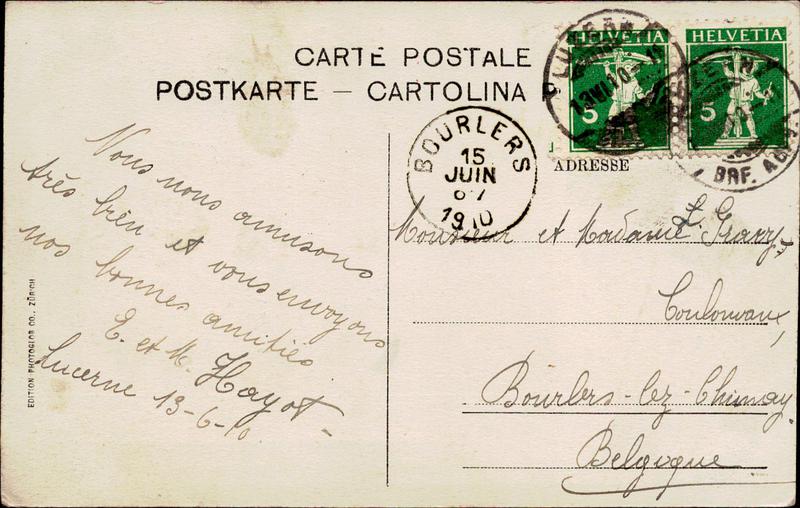 CARTE POSTALE
POSTKARTE — CARTOLINA P
HELVETIA
5
HELVETIA
5
LUZERN
13.VI.10
LUZERN
BRF. A
BOURLERS
15
JUIN
1910
ADRESSE
Nous nous amusons
très bien et vous envoyons
nos bonnes amitiés
E. et M. Hayot
Lucerne 13-6-10.
Monsieur et Madame L.
Bourlers-lez-Chimay
Belgique
EDITION PHOTOGLOB CO., ZÜRICH